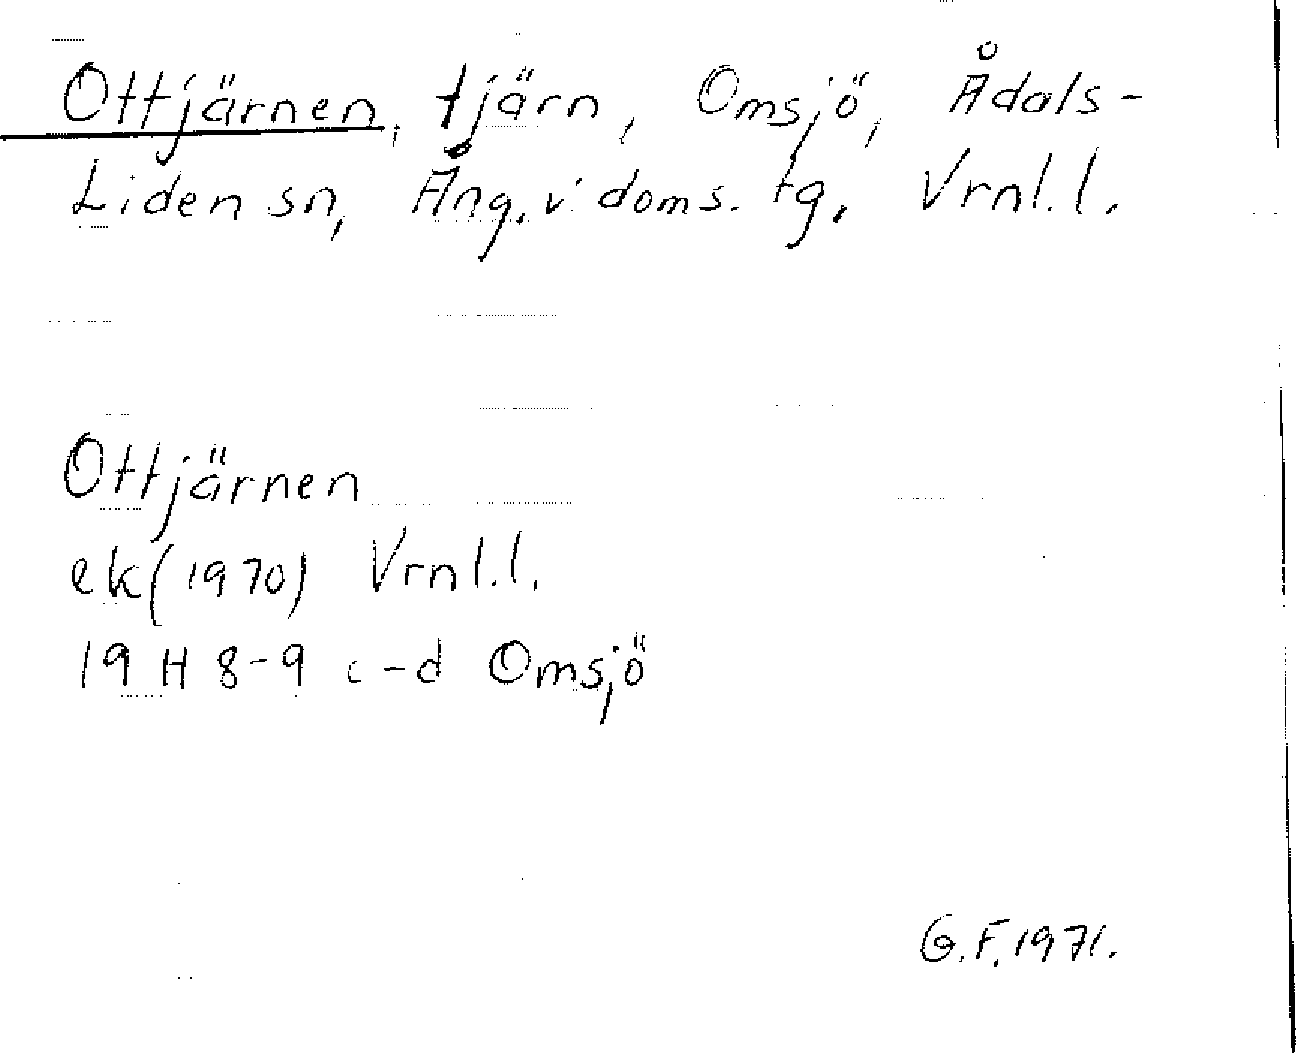 Ottjärnen, tjärn, Omsjö, Ådals-
Liden sn, Ång. v: doms. tg. Vrnl. l.
Ottjärnen
ek (1970) Vrnl. l.
19 H 8-9 c-d Omsjö
G. F. 1971.